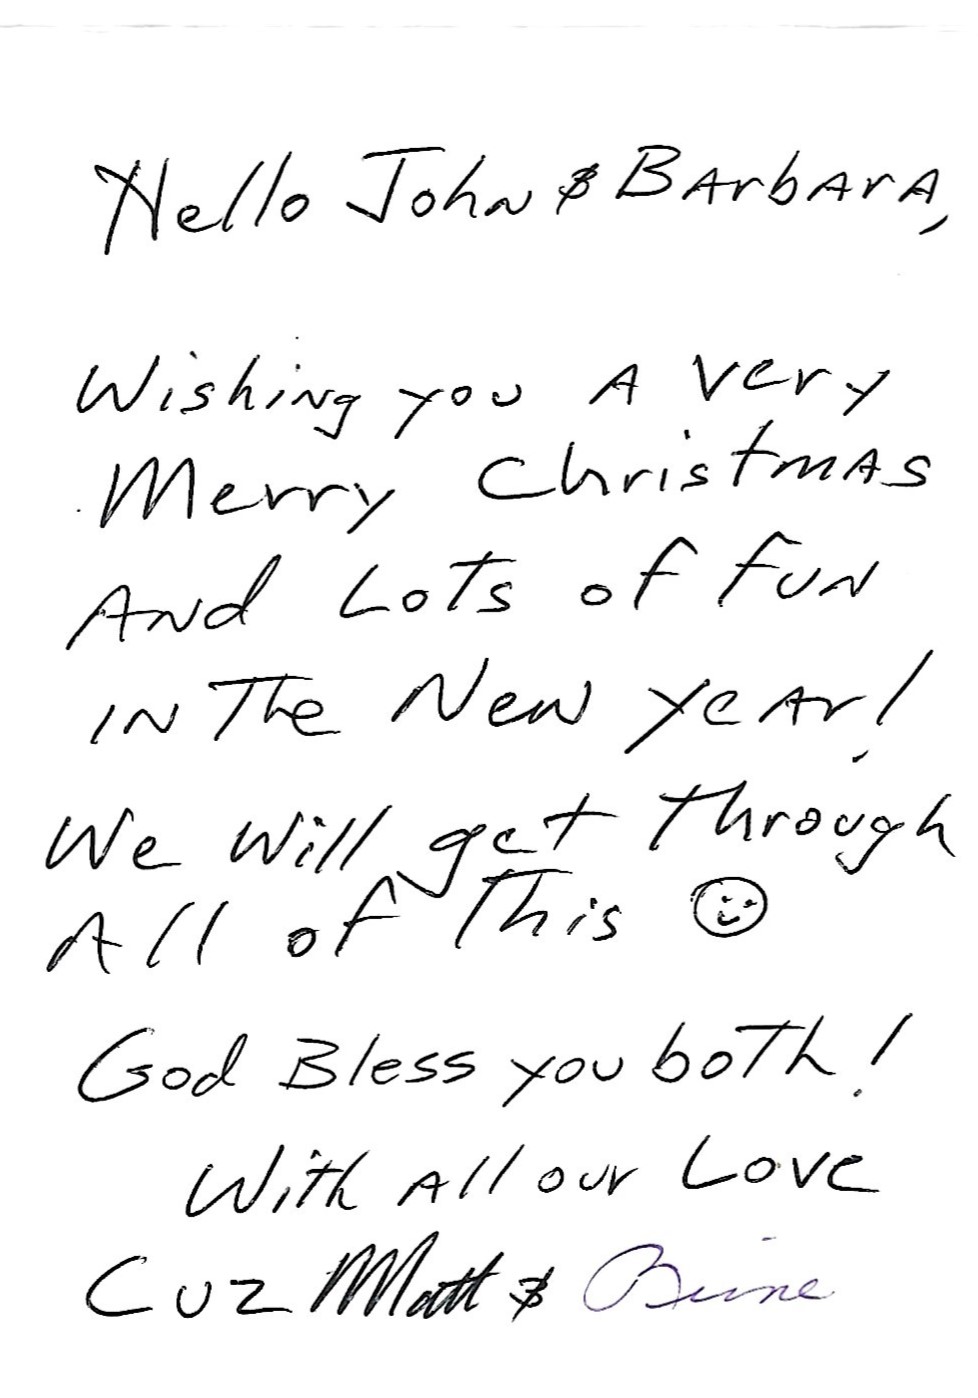 Hello John & Barbara,
Wishing you A very
Merry Christmas
And Lots of Fun
in The New Year!
We Will get Through
All of This ☺
God Bless you both!
With All our Love
Cuz Matt &